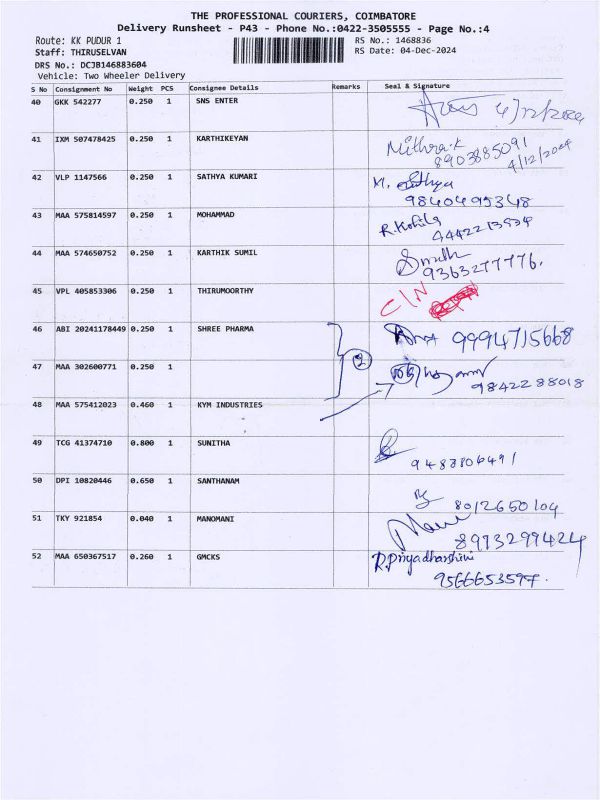 THE PROFESSIONAL COURIERS, COIMBATORE
Delivery Runsheet - P43 - Phone No.:0422-3505555 - Page No.:4
Route: KK PUDUR 1
RS No.: 1468836
Staff: THIRUSELVAN
RS Date: 04-Dec-2024
DRS No.: DCJB146883604
Vehicle: Two Wheeler Delivery
S No Consignment No Weight PCS Consignee Details Remarks Seal & Signature
40 GKK 542277 0.250 1 SNS ENTER
4/12/2024
41 IXM 507478425 0.250 1 KARTHIKEYAN
Mithra.K
8903885091
4/12/2024
42 VLP 1147566 0.250 1 SATHYA KUMARI
M. Sathya
9840495348
43 MAA 575814597 0.250 1 MOHAMMAD
R.Kohila
44 MAA 574650752 0.250 1 KARTHIK SUMIL
9363277776.
45 VPL 405853306 0.250 1 THIRUMOORTHY
C/N
46 ABI 20241178449 0.250 1 SHREE PHARMA
9994715668
47 MAA 302600771 0.250 1
2
9842288018
48 MAA 575412023 0.460 1 KYM INDUSTRIES
49 TCG 41374710 0.800 1 SUNITHA
9488806491
50 DPI 10820446 0.650 1 SANTHANAM
8012650104
51 TKY 921854 0.040 1 MANOMANI
8973299424
52 MAA 650367517 0.260 1 GMCKS
R.Priyadharshini
9566653597.